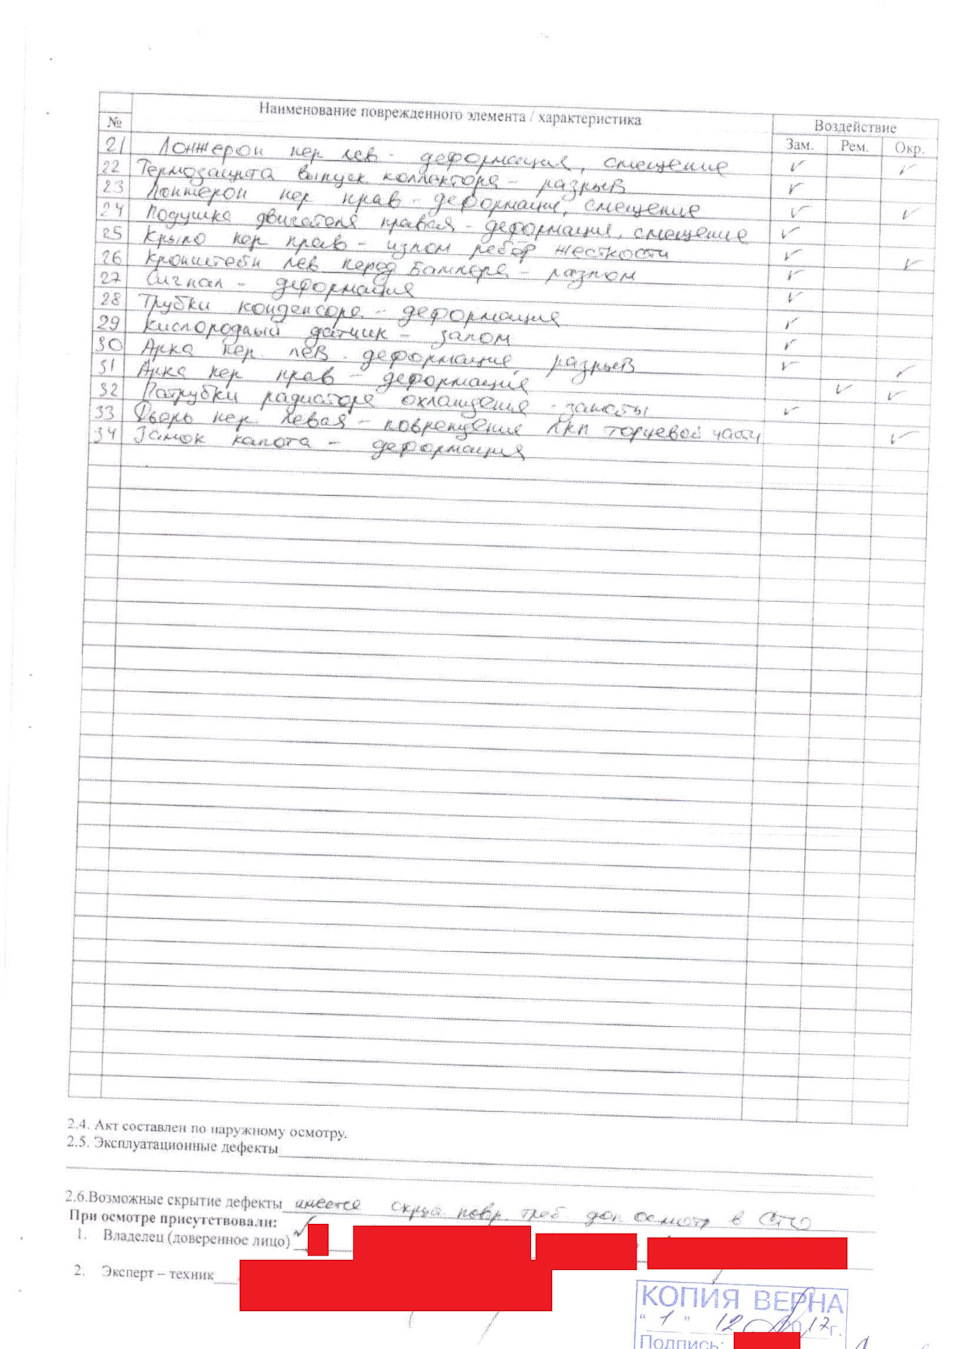 № Наименование поврежденного элемента / характеристика Воздействие
Зам. Рем. Окр.
21 Лонжерон пер лев - деформация, смещение
22 Термозащита выпуск коллектора - разрыв
23 Лонжерон пер прав - деформация, смещение
24 Подушка двигателя правая - деформация, смещение
25 Крыло пер прав - излом ребер жесткости
26 Кронштейн лев перед бампера - разлом
27 Сигнал - деформация
28 Трубки конденсора - деформация
29 Кислородный датчик - залом
30 Арка пер лев - деформация, разрыв
31 Арка пер прав - деформация
32 Патрубки радиатора охлаждения - заломы
33 Дверь пер левая - повреждения ЛКП торцевой части
34 Замок капота - деформация
2.4. Акт составлен по наружному осмотру.
2.5. Эксплуатационные дефекты
2.6.Возможные скрытие дефекты имеется скрыт повр. треб доп осмотр в СТО
При осмотре присутствовали:
1. Владелец (доверенное лицо)
2. Эксперт – техник
КОПИЯ ВЕРНА
" 1 " 12 2017г.
Подпись: